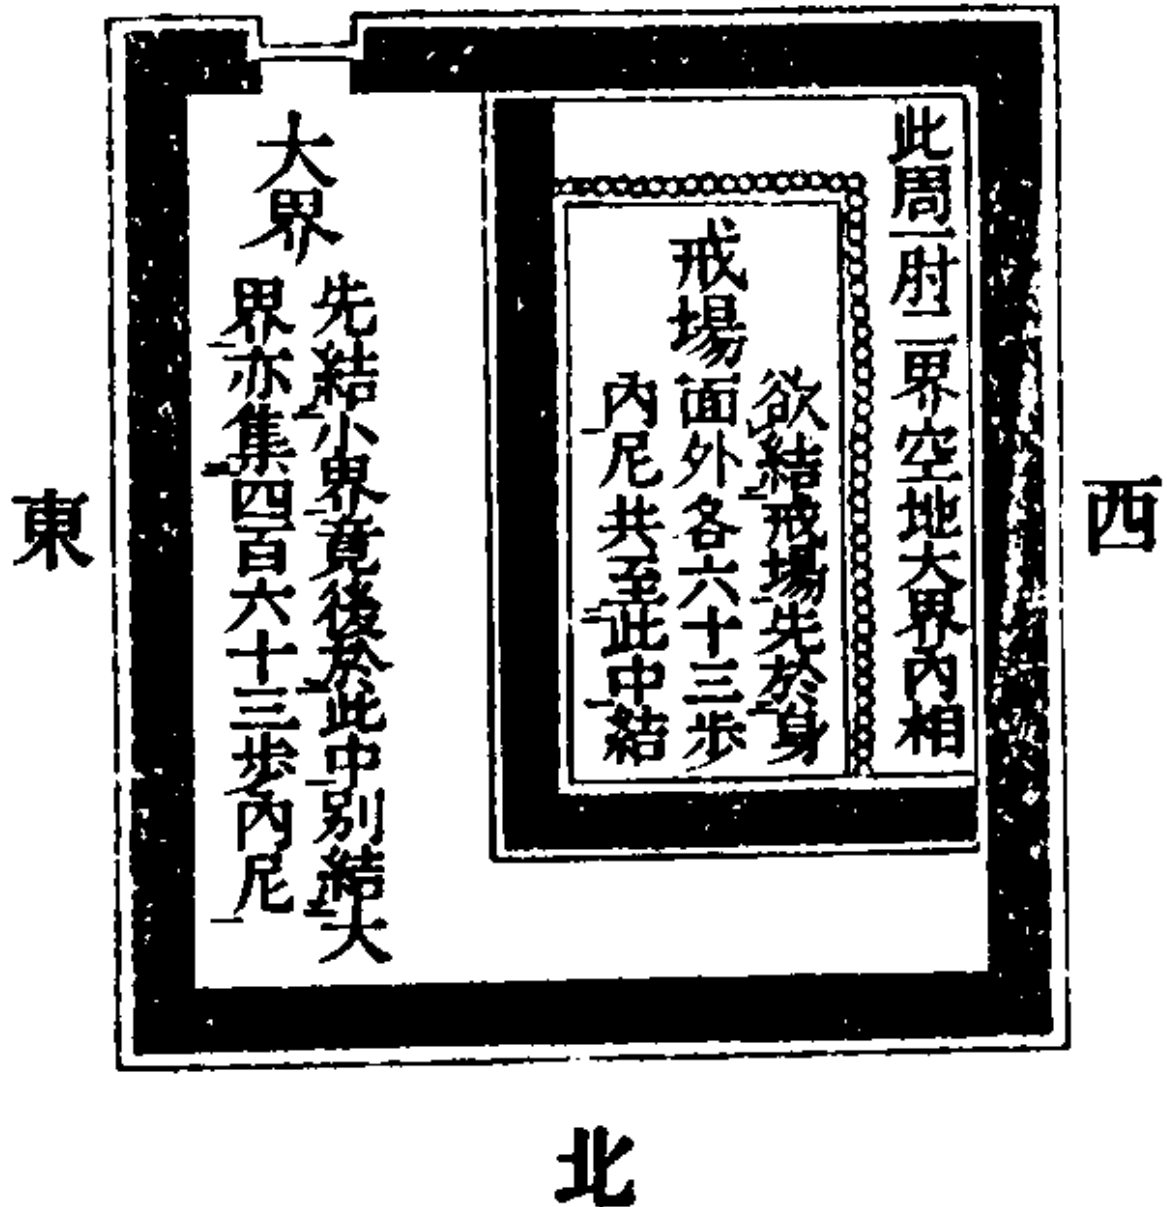 此周一肘二界空地大界內相
戒場
欲結戒場先於身
面外各六十三步
內尼共至此中結
大界
先結小界竟後於此中別結大
界亦集四百六十三步內尼
西
東
北